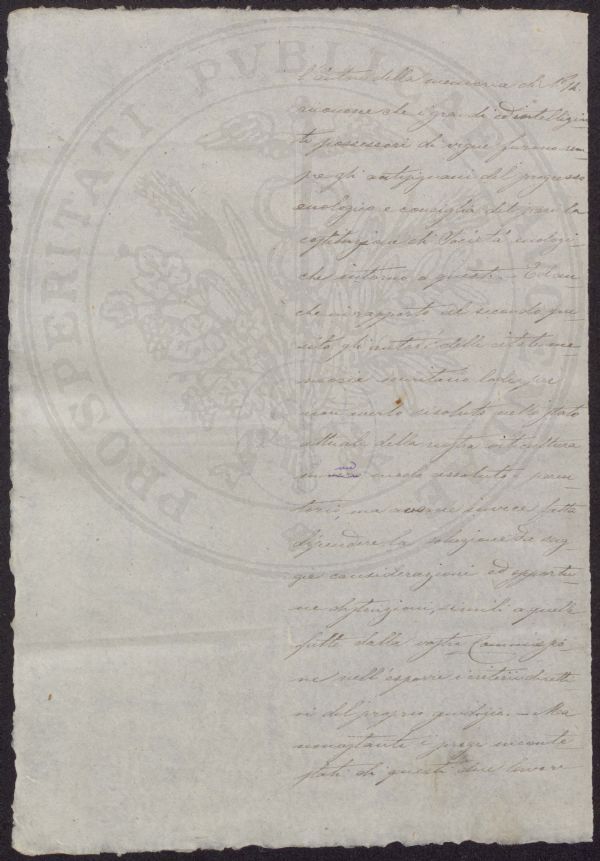 l'autore della memoria di N.º 12.
riconosce che i grandi ed intelligen-
ti possessori di vigne furono sem-
pre gli antesignani del progresso
enologico e consiglia del pari la
costituzione di Società enologi-
che intorno a questi. — Ed an-
che in rapporto al secondo que-
sito gli autori delle citate me-
morie meritano lode per
non averlo risoluto nello stato
attuale della nostra viticultura
in modo assoluto e peren-
torio, ma averne invece fatta
dipendere la soluzione da sag-
ge considerazioni ed opportu-
ne distinzioni, simili a quelle
fatte dalla vostra Commissio-
ne nell'esporre i criterii diretti-
vi del proprio giudizio. — Ma
nonostante i pregi inconte-
stati di questi due lavori
PROSPERITATI PVBLICAE